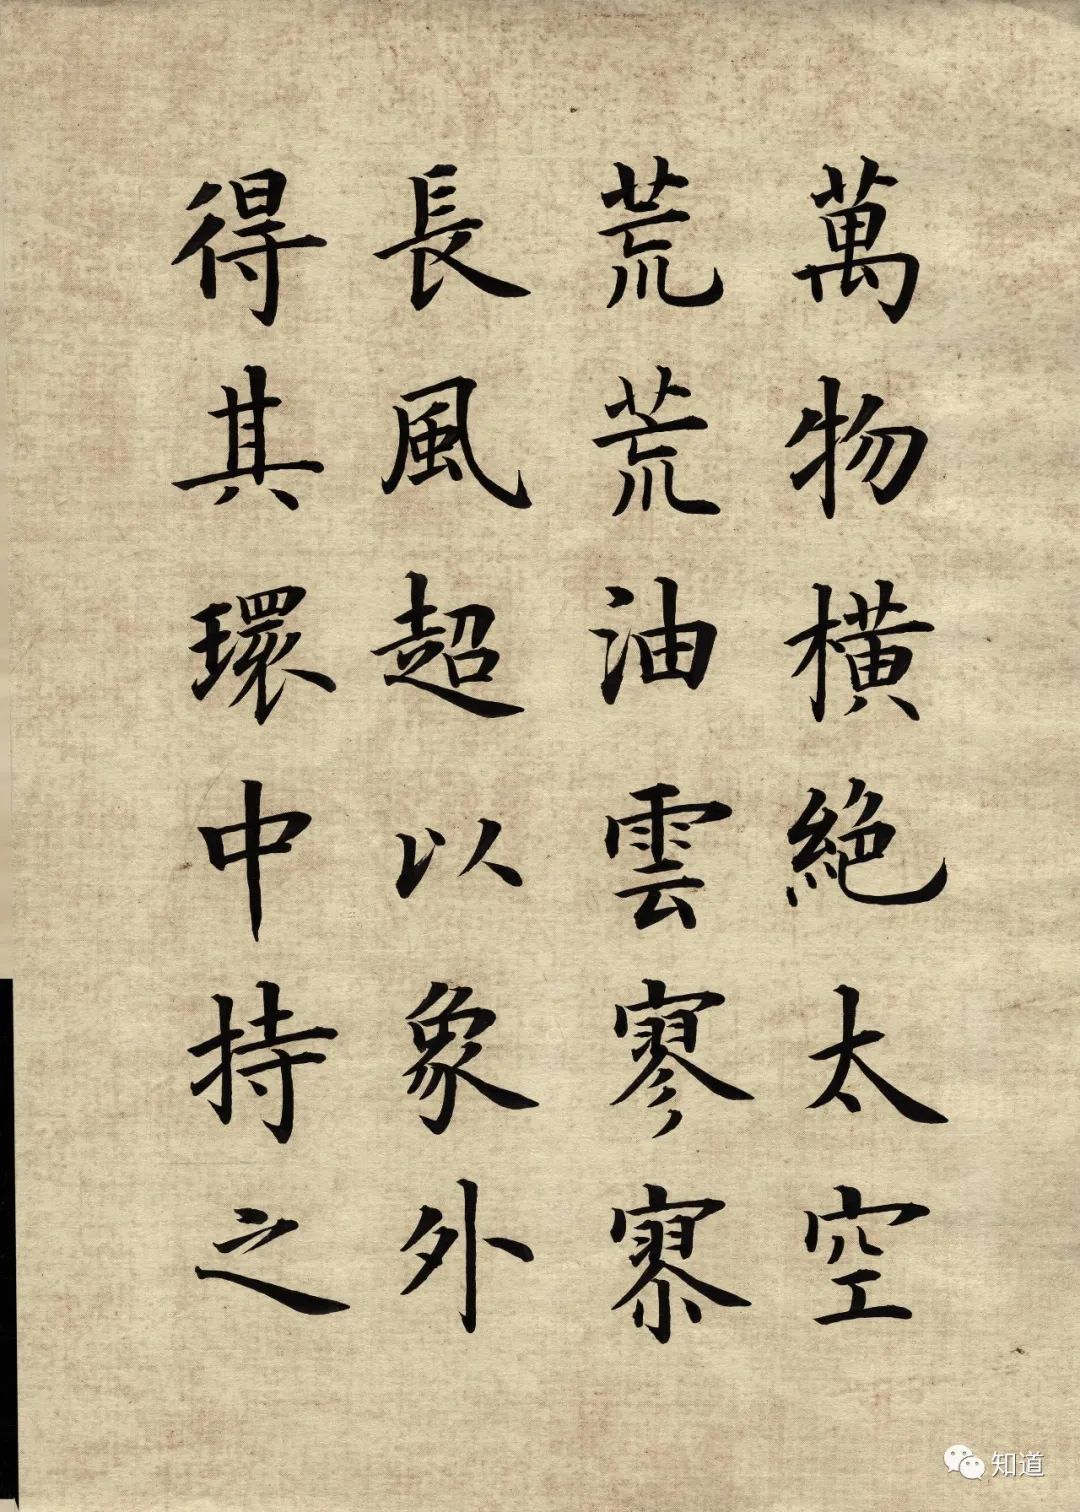 萬物横絶太空
荒荒油雲寥寥
長風超以象外
得其環中持之
知道